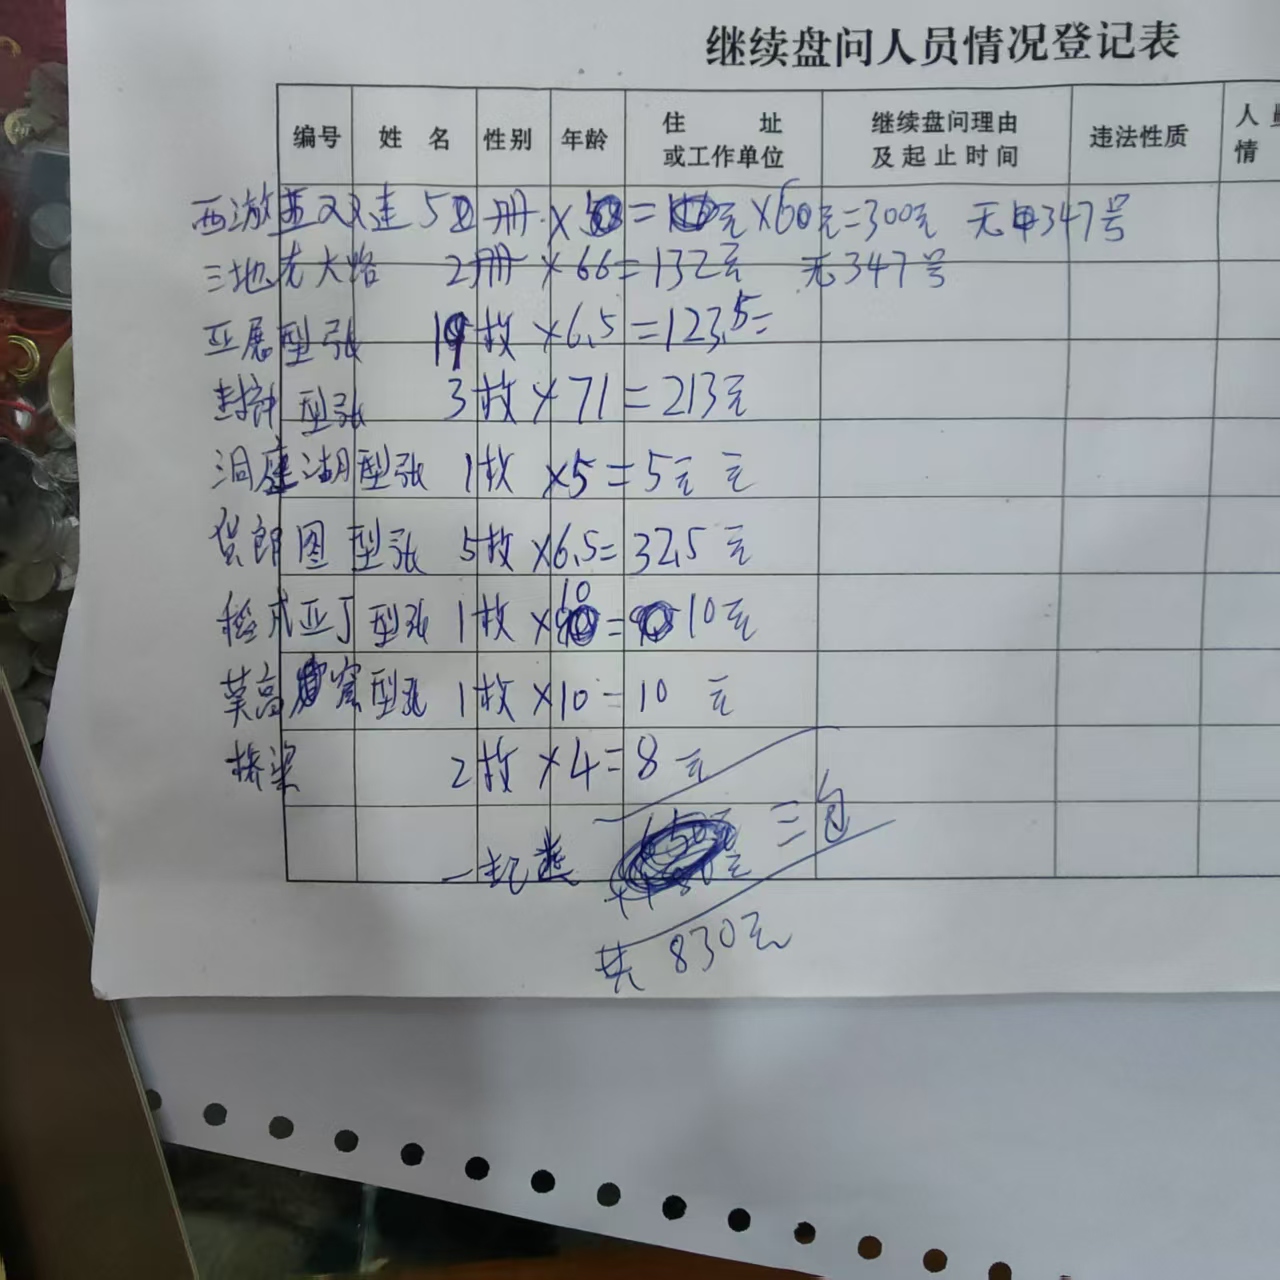 继续盘问人员情况登记表
编号 姓名 性别 年龄 住址或工作单位 继续盘问理由及起止时间 违法性质 人 情
西游 双连 5 册 × = 元 ×60元=300元 无 347号
三地 大路 2册 ×66=132元 无347号
亚展型张 19枚 ×6.5=123.5=
型张 3枚 ×71=213元
洞庭湖型张 1枚 ×5=5元 元
货郎图型张 5枚 ×6.5=32.5元
稻城亚丁型张 1枚 ×10= 10元
莫高窟型张 1枚 ×10=10 元
桥梁 2枚 ×4=8元
一起 三包
共 830元